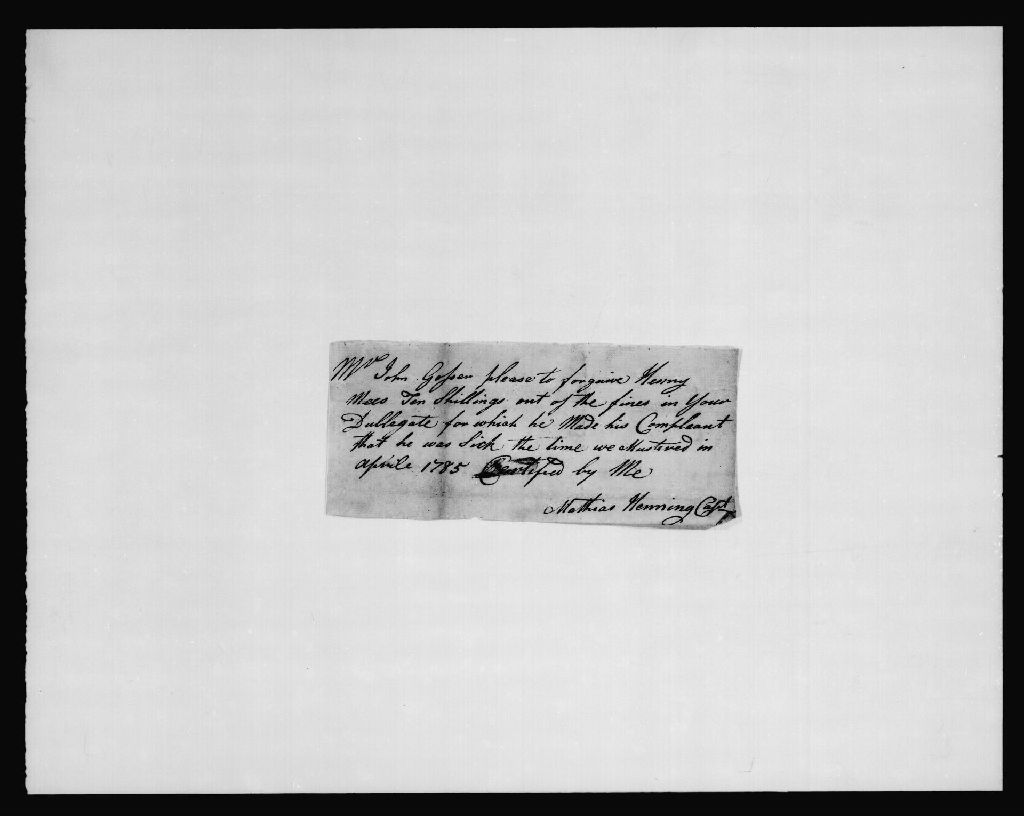 Mr John Gosser please to forgive Henry
Mees Ten Shillings out of the fines in Your
Dublegate for which he Made his Compleant
that he was Sick the time we Mustred in
aprile 1785 Certified by Me
Mathias Henning Capt